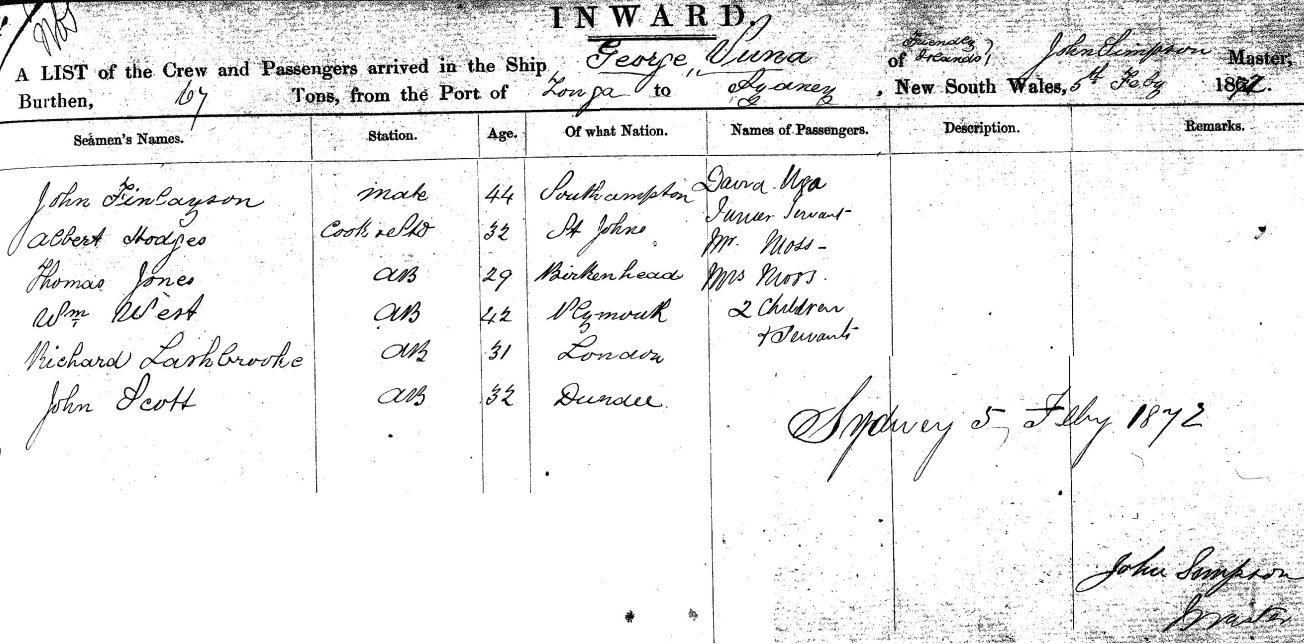 INWARD.
A LIST of the Crew and Passengers arrived in the Ship George Vuna of Friendly Islands, John Simpson Master,
Burthen, 67 Tons, from the Port of Tonga to Sydney, New South Wales, 5th Feby 1872.
Seamen's Names. Station. Age. Of what Nation. Names of Passengers. Description. Remarks.
John Finlayson mate 44 Southampton David Uga
Junior Servant
Albert Hodges Cook & Std 32 St Johns Mr. Moss -
Thomas Jones AB 29 Birkenhead Mrs Moss.
Wm West AB 42 Plymouth 2 Children
& Servants
Richard Lashbrooke AB 31 London
John Scott AB 32 Dundee.
Sydney 5, Feby 1872
John Simpson
Master